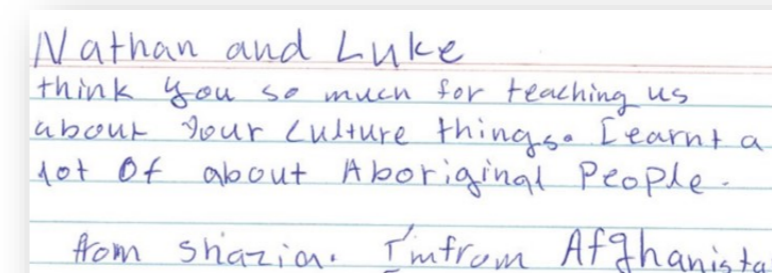 Nathan and Luke
think you so much for teaching us
about your culture things. I earnt a
lot of about Aboriginal People.
from shazia. I'm from Afghanista